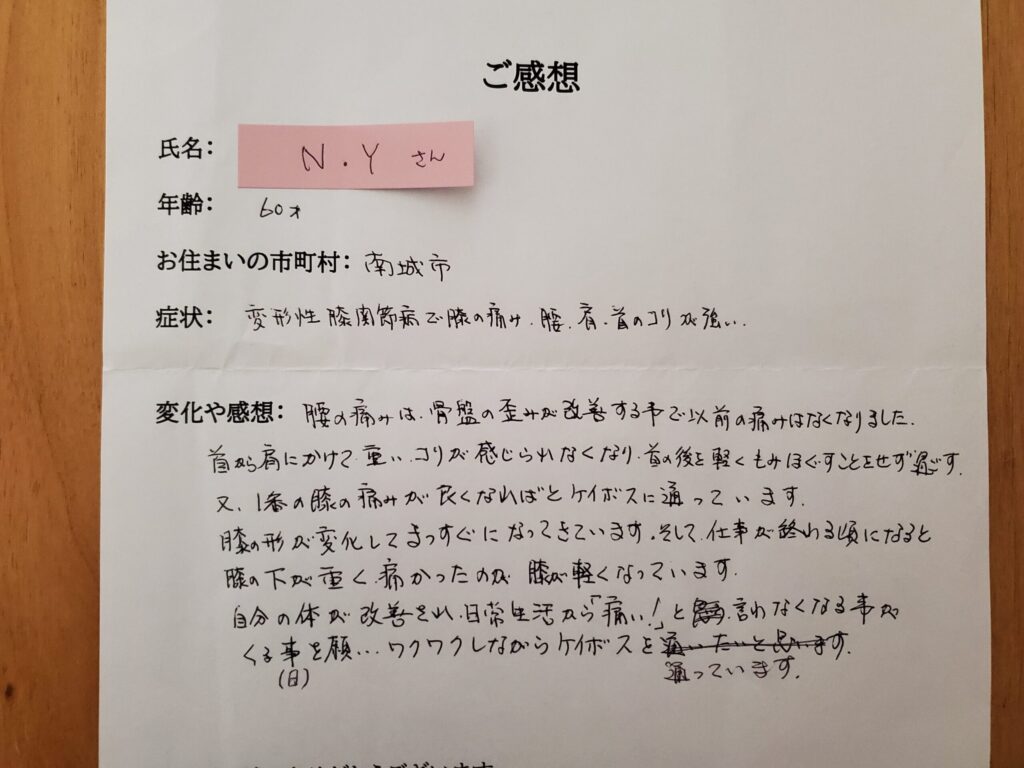 ご感想
氏名： N・Y さん
年齢： 60才
お住まいの市町村： 南城市
症状： 変形性膝関節病で膝の痛み．腰．肩．首のコリが強い．
変化や感想： 腰の痛みは、骨盤の歪みが改善する事で以前の痛みはなくなりました．
首から肩にかけて．重い．コリが感じられなくなり．首の後を軽くもみほぐすことをせず過ごす．
又、1番の膝の痛みが良くなればとケイボスに通っています．
膝の形が変化してまっすぐになってきています．そして．仕事が終わる頃になると
膝の下が重く．痛かったのが 膝が軽くなっています．
自分の体が改善され．日常生活から「痛い！」と 言わなくなる事が
くる事を願い… ワクワクしながらケイボスを通いたいと思います．
(日) 通っています．